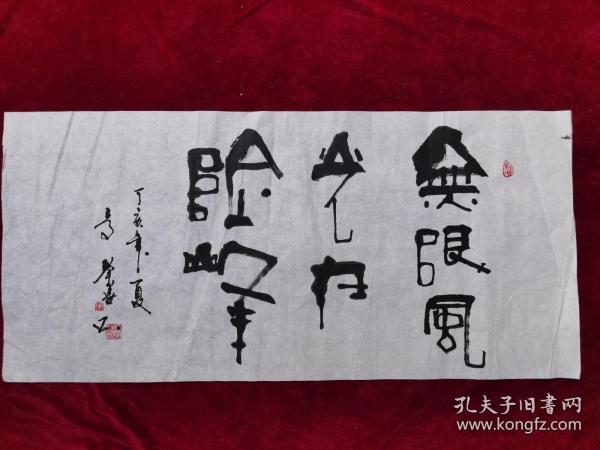 無限風
光在
險峰
丁亥年夏
孔夫子旧書网
www.kongfz.com